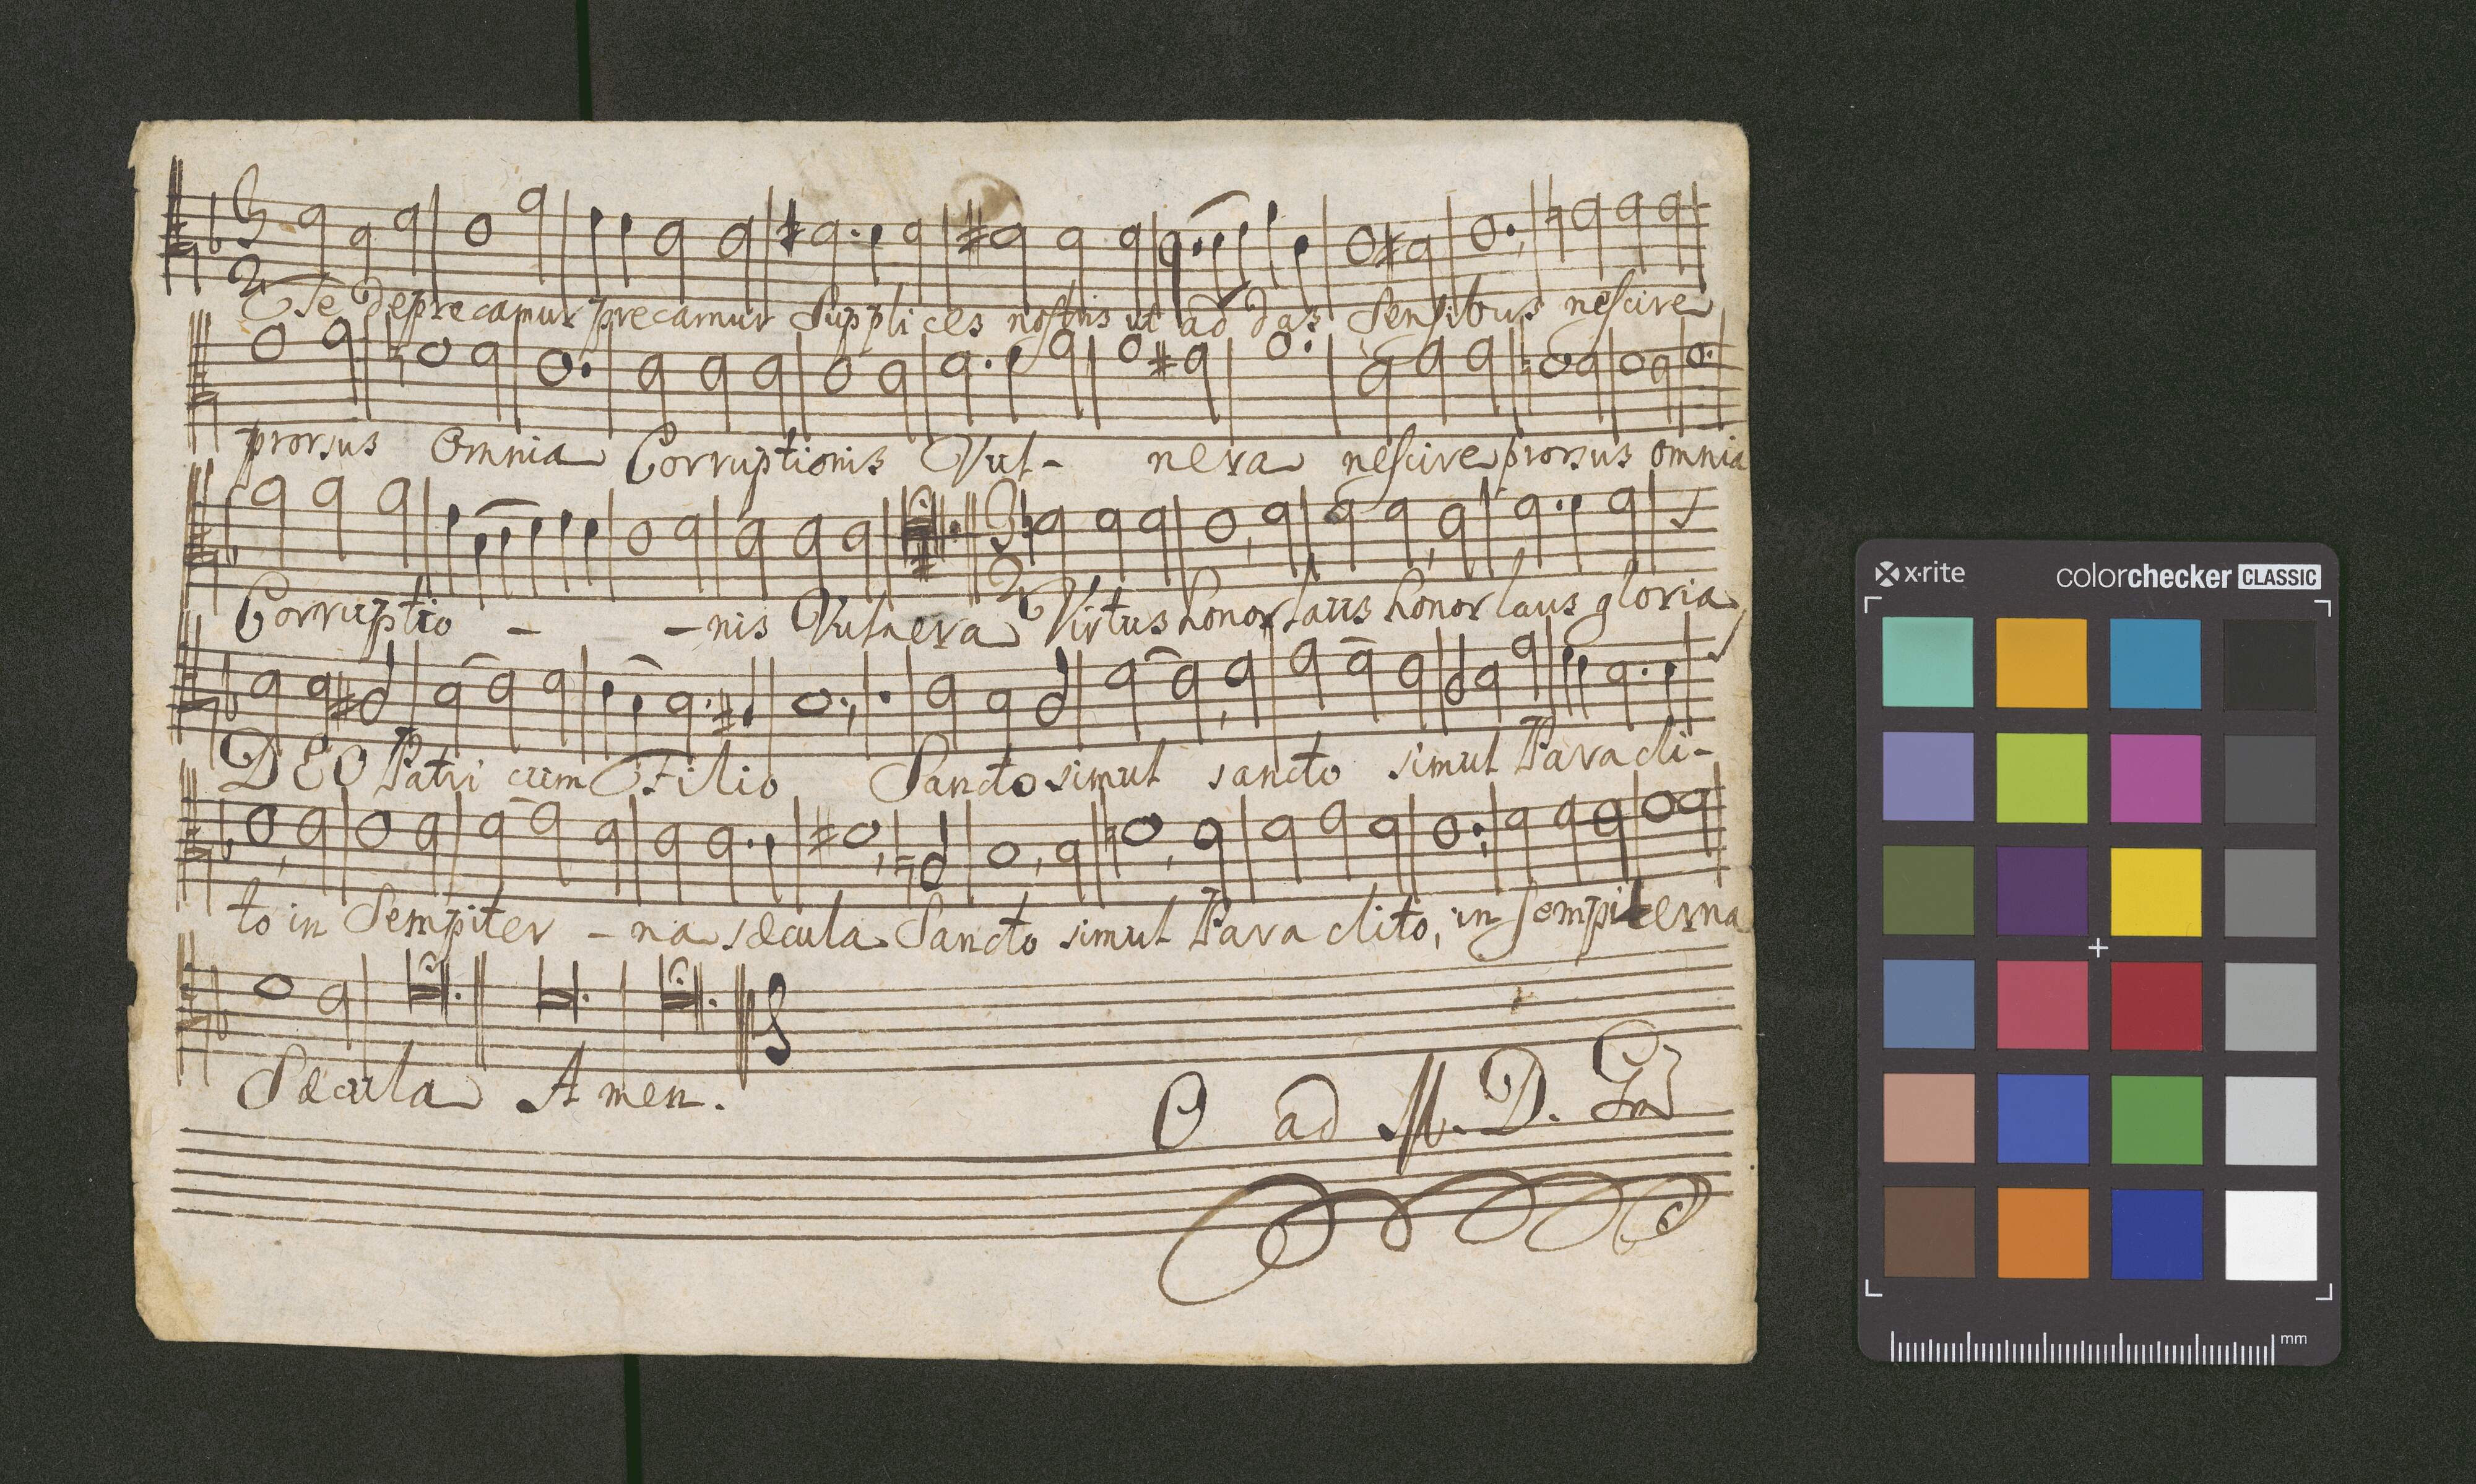 Te deprecamur precamur Supplices nostris ut ad das Sensibus nescire
prorsus Omnia Corruptionis Vul- nera nescire prorsus omnia
Corruptio - - nis Vulnera Virtus honor laus honor laus gloria
DEO Patri cum Filio Sancto simul sancto simul Paracli-
to in Sempiter - na sæcula Sancto simul Para clito, in sempiterna
Sæcula Amen.
O ad M. D. G
x·rite colorchecker CLASSIC
mm